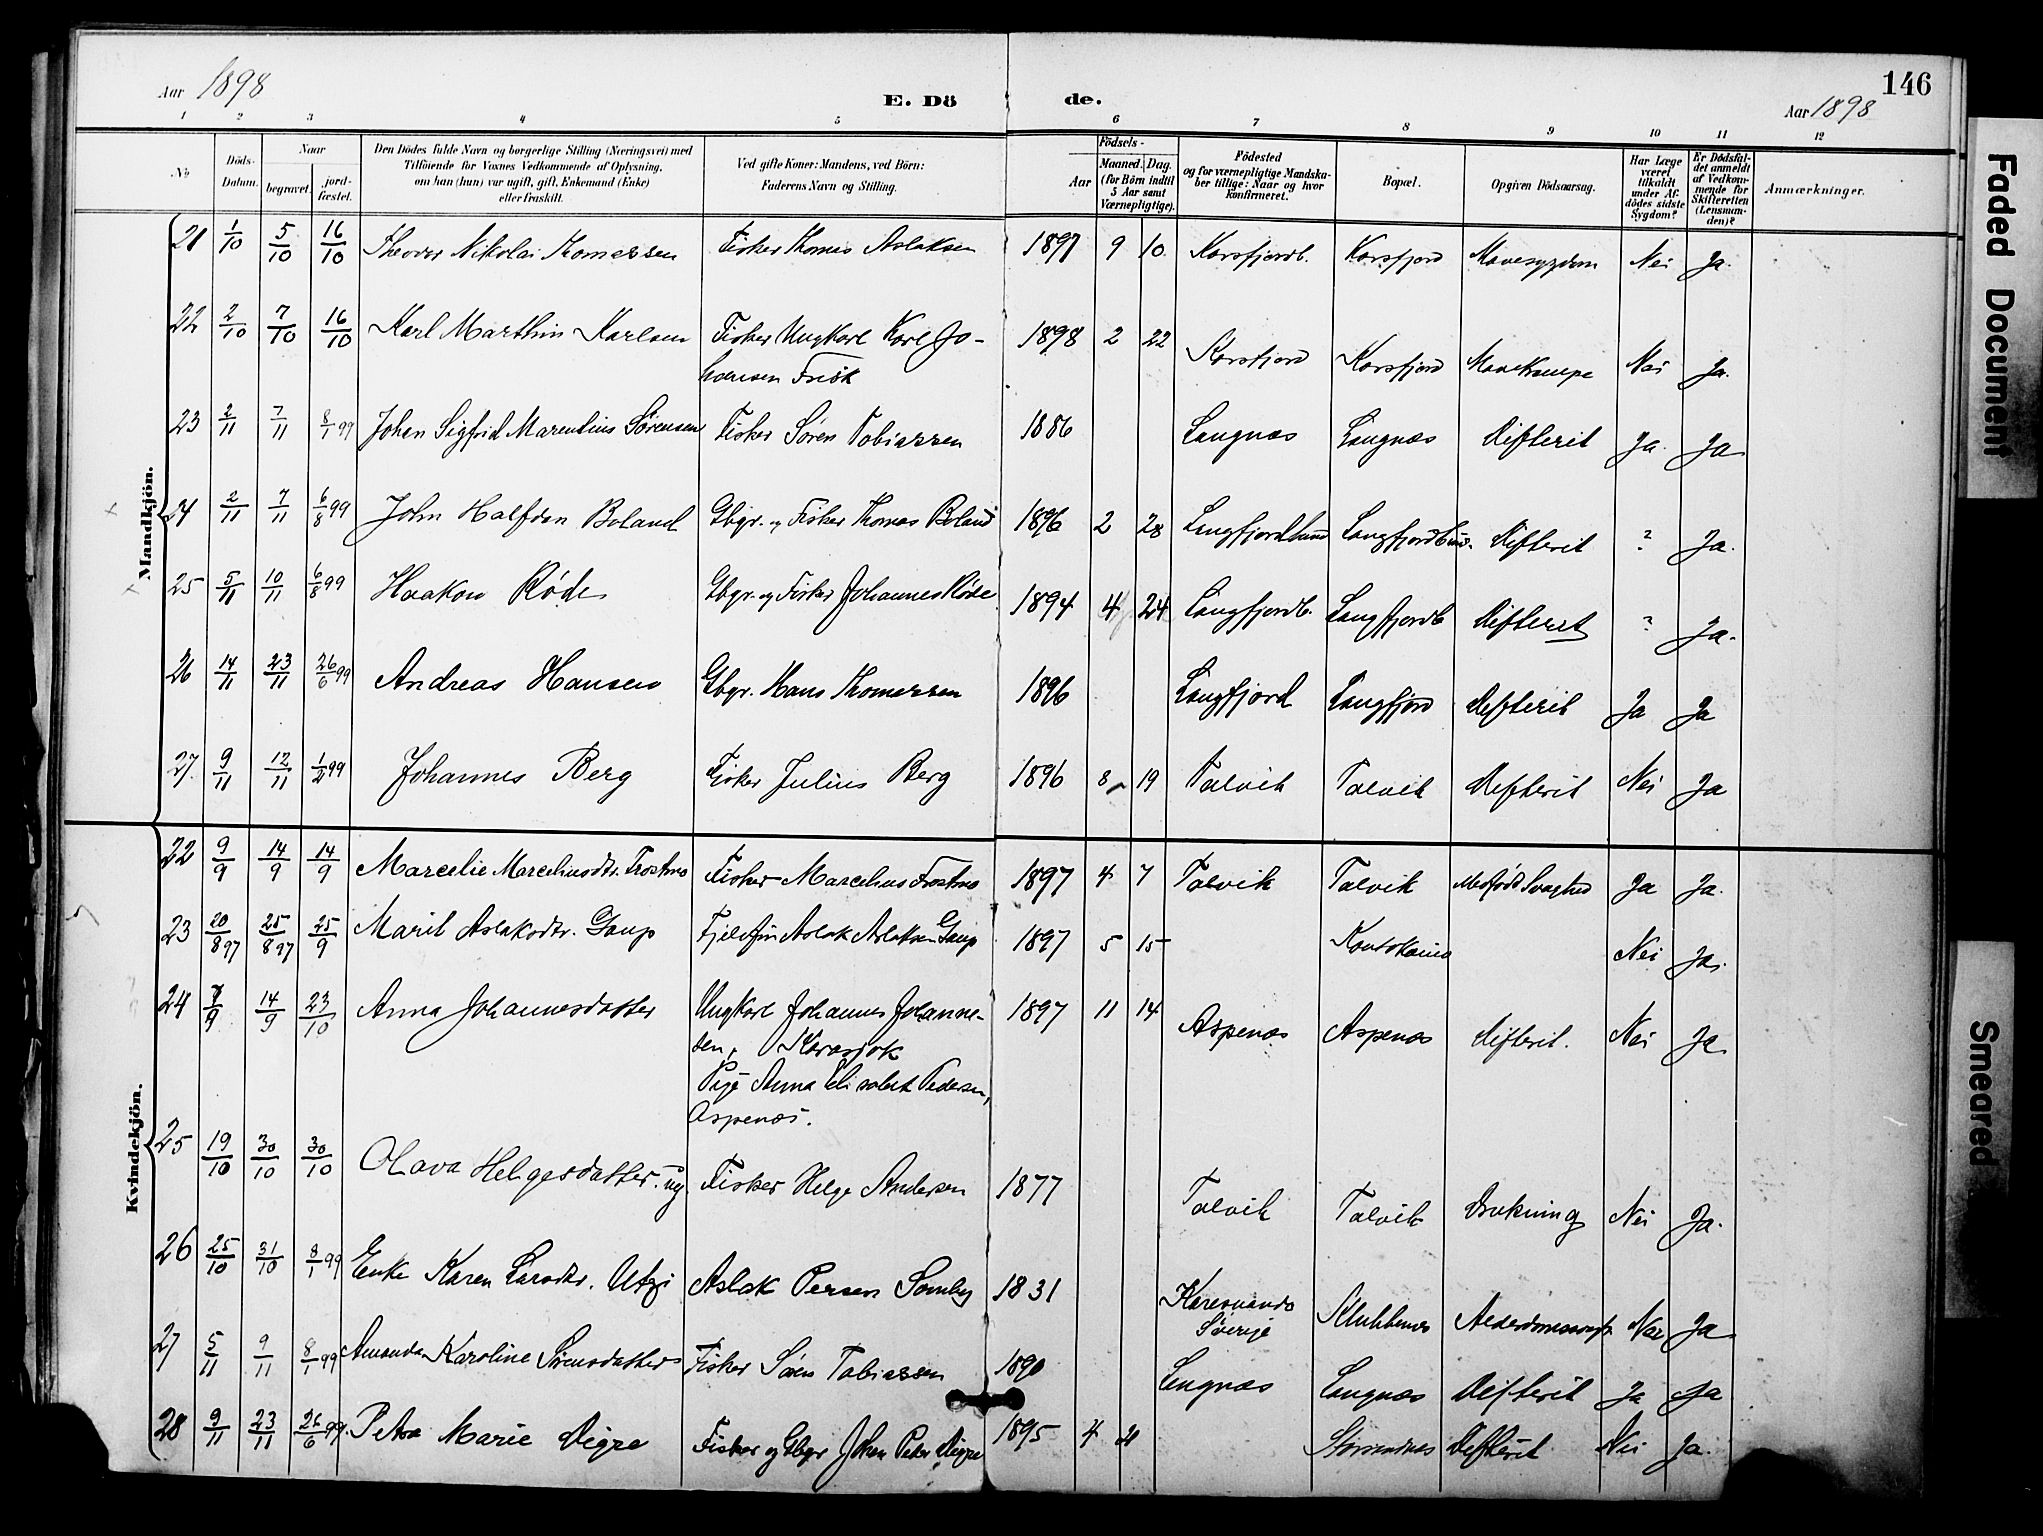 Aar 1898
E. Dö
de.
Aar 1898
146
1 2 3 4 5 6 7 8 9 10 11 12
No
Döds-
Datum.
Naar
begravet.
jord-
fæstet.
Den Dödes fulde Navn og borgerlige Stilling (Næringsvei) med
Tilföiende for Voxnes Vedkommende af Oplysning,
om han (hun) var ugift, gift, Enkemand (Enke)
eller fraskilt.
Ved gifte Koner: Mandens, ved Börn:
Faderens Navn og Stilling.
Födsels-
Aar
Maaned. Dag.
(for Börn indtil
5 Aar samt
Værnepligtige).
Födested
og for værnepligtige Mandska-
ber tillige: Naar og hvor
konfirmeret.
Bopæl.
Opgiven Dödsaarsag.
Har Læge
været
tilkaldt
under Af-
dödes sidste
Sygdom?
Er Dödsfal-
det anmeldt
af Vedkom-
mende for
Skifteretten
(Lensman-
den)?
Anmærkninger.
Mandkjön.
21 1/10 5/10 16/10 Theodor Nikolai Thomassen Fisker Thomas Aslaksen 1897 9 10 Korsfjordb. Korsfjord Mavesygdom Nei Ja.
22 2/10 7/10 16/10 Karl Marthin Karlsen Fisker Ungkarl Karl Jo- 1898 2 22 Korsfjord Korsfjord Mavekrampe Nei Ja.
hansen Frisk
23 2/11 7/11 8/1 99 Johan Sigfrid Marentius Sörensen Fisker Sören Tobiassen 1886 Langnæs Langnæs Difterit Ja. Ja
24 2/11 7/11 6/8 99 John Halfdan Boland Gbgr. og Fisker Thomas Boland 1896 2 28 Langfjordbund Langfjordbund. Difterit ? Ja.
25 5/11 10/11 6/8 99 Haakon Röde Gbgr. og Fisker Johannes Röde 1894 4 24 Langfjordb. Langfjordb Difterit ? Ja.
26 14/11 23/11 26/6 99 Andreas Hansen Gbgr. Hans Thomassen 1896 Langfjord Langfjord Difterit Ja Ja
27. 9/11 12/11 1/2 99 Johannes Berg Fisker Julius Berg 1896 8 19 Talvik Talvik Difterit Nei Ja
Kvindekjön.
22 9/9 14/9 14/9 Marcelie Marceliusdtr. Trostnes Fisker Marcelius Trostnes 1897 4 7 Talvik Talvik Medfödt Svaghed Ja Ja.
23 20/8 97 25/8 97 25/9 Marit Aslaksdtr. Gaup Fjeldfin Aslak Aslaksen Gaup 1897 5 15 Koutokeino Nei Ja.
24 /9 14/9 23/10 Anna Johannesdatter Ungkarl Johannes Johanne- 1897 11 14 Aspenæs Aspenæs Difterit. Nei Ja
sen, Karasjok
Pige Anna Elisabet Pedersen,
Aspenæs.
25 19/10 30/10 30/10 Olava Helgesdatter. ug. Fisker Helge Andersen 1877 Talvik Talvik Drukning Nei Ja.
26 25/10 31/10 8/1 99 Enke Karen Larsdtr. Utsi Aslak Persen Somby 1831 Karesuando Klubbenes Alderdomssvagh. Nei Ja
Sverige
27 5/11 9/11 8/1 99 Amanda Karoline Sörensdatter Fisker Sören Tobiassen 1890 Langnæs Langnæs Difterit Ja Ja
28 9/11 23/11 26/6 99. Petra Marie Digre Fisker og Gbgr Johan Peter Digre 1895 4 21 Storsandnes Difterit Nei Ja.
Faded Document
Smeared